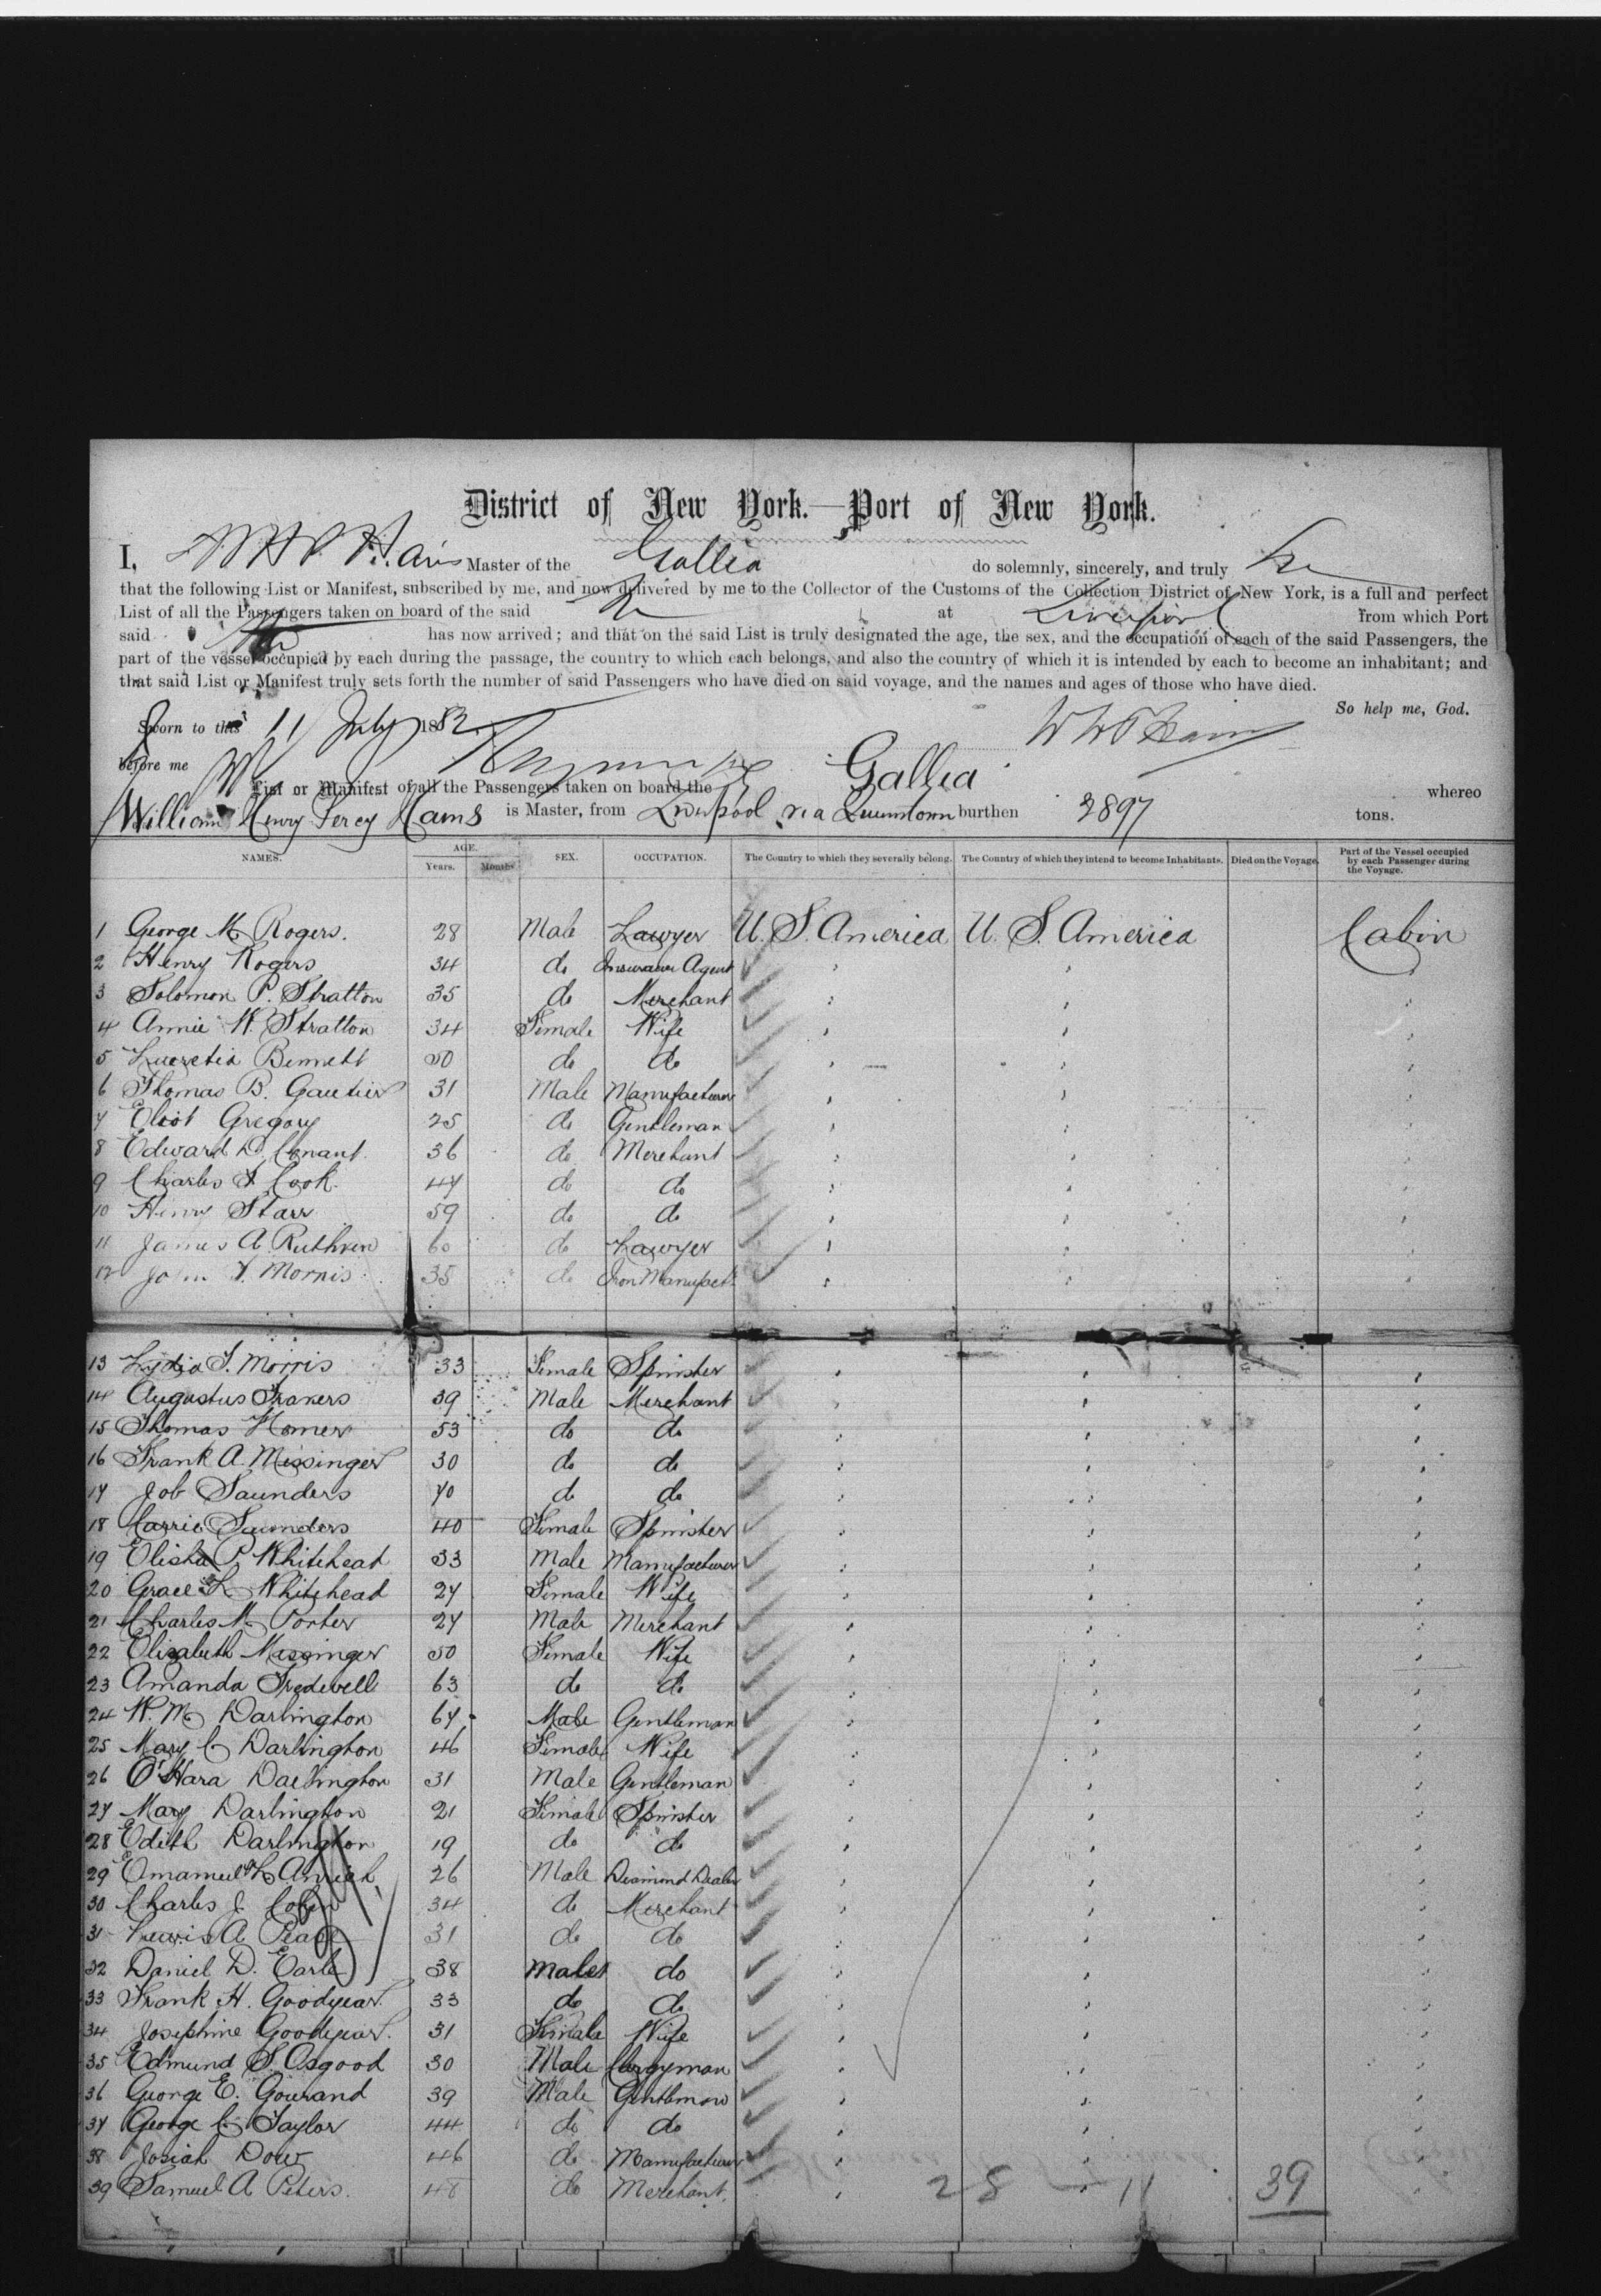 District of New York.—Port of New York.
I, W H P Hains Master of the Gallia do solemnly, sincerely, and truly
that the following List or Manifest, subscribed by me, and now delivered by me to the Collector of the Customs of the Collection District of New York, is a full and perfect
List of all the Passengers taken on board of the said at Liverpool from which Port
said has now arrived; and that on the said List is truly designated the age, the sex, and the occupation of each of the said Passengers, the
part of the vessel occupied by each during the passage, the country to which each belongs, and also the country of which it is intended by each to become an inhabitant; and
that said List or Manifest truly sets forth the number of said Passengers who have died on said voyage, and the names and ages of those who have died.
So help me, God.
Sworn to this 11 July 1882 W H P Hains
before me
List or Manifest of all the Passengers taken on board the Gallia whereo
William Henry Percy Hains is Master, from Liverpool via Queenstown burthen 2897 tons.
NAMES. AGE. SEX. OCCUPATION. The Country to which they severally belong. The Country of which they intend to become Inhabitants. Died on the Voyage. Part of the Vessel occupied by each Passenger during the Voyage.
Years. Months
1 George M Rogers. 28 Male Lawyer U. S. America U. S. America Cabin
2 Henry Rogers 34 do Insurance Agent
3 Solomon P. Stratton 35 do Merchant
4 Annie W. Stratton 34 Female Wife
5 Lucretia Bennett 50 do do
6 Thomas B. Gautier 31 Male Manufacturer
7 Eliot Gregory 25 do Gentleman
8 Edward D. Conant 36 do Merchant
9 Charles F Cook 47 do do
10 Henry Starr 59 do do
11 James A. Ruthven 60 do Lawyer
12 John F. Morris 35 do Iron Manufact.
13 Lydia T. Morris 33 Female Spinster
14 Augustus Travers 39 Male Merchant
15 Thomas Homer 53 do do
16 Frank A. Messinger 30 do do
17 Job Saunders 70 do do
18 Carrie Saunders 40 Female Spinster
19 Elisha P. Whitehead 33 Male Manufacturer
20 Grace L Whitehead 27 Female Wife
21 Charles M. Porter 27 Male Merchant
22 Elizabeth Messinger 50 Female Wife
23 Amanda Tredwell 63 do do
24 W. M Darlington 67 Male Gentleman
25 Mary C Darlington 46 Female Wife
26 O'Hara Darlington 31 Male Gentleman
27 Mary Darlington 21 Female Spinster
28 Edith Darlington 19 do do
29 Emanuel 26 Male Diamond Dealer
30 Charles J. Cohen 34 do Merchant
31 Lewis A 31 do do
32 Daniel D. Earle 38 Male do
33 Frank H. Goodyear. 33 do do
34 Josephine Goodyear. 31 Female Wife
35 Edmund S. Osgood 30 Male Clergyman
36 George E. Gourand 39 Male Gentleman
37 George C. Taylor 44 do do
38 Josiah Dow 46 do Manufacturer
39 Samuel A Peters. 48 do Merchant.
28 - 11 39